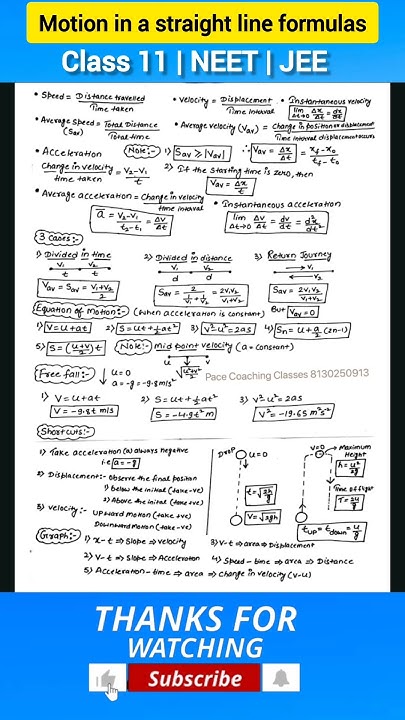 Motion in a straight line formulas
Class 11 | NEET | JEE
• Speed = Distance travelled / Time taken
• Velocity = Displacement / Time Interval
• Instantaneous velocity
lim Δt→0 Δx/Δt = dx/dt
• Average speed = Total Distance / Total time
(Sav)
• Average velocity (Vav) = Change in position or displacement / Time interval displacement occurs
• Acceleration
Note:- 1) Sav ≥ |Vav|
∴ Vav = Δx/Δt = xf - x0 / tf - t0
Change in velocity / time taken = V2-V1 / t
2) If the starting time is zero, then
Vav = Δx/t
• Average acceleration = Change in velocity / time interval
a = V2-V1 / t2-t1 = ΔV/Δt
• Instantaneous acceleration
lim Δt→0 ΔV/Δt = dv/dt = d²x/dt²
3 Cases:-
1) Divided in time
V1 V2
t t
Vav = Sav = V1+V2 / 2
2) Divided in distance
V1 V2
d d
Sav = 2 / 1/V1 + 1/V2 = 2V1V2 / V1+V2
3) Return Journey
V1
V2
Sav = 2V1V2 / V1+V2
But Vav = 0
Equation of Motion:- (When acceleration is constant)
1) V = u + at
2) S = ut + ½at²
3) V²-u² = 2as
4) Sn = u + a/2 (2n-1)
5) S = (u+v / 2) t
Note:- Mid point velocity (a = constant)
u v
√u²+v² / 2
Free fall:- u = 0
a = -g = -9.8 m/s²
Pace Coaching Classes 8130250913
1) V = u + at
V = -9.8t m/s
2) S = ut + ½at²
S = -4.9t² m
3) V²-u² = 2as
V² = -19.6s m²s⁻²
Shortcuts:-
1) Take acceleration (a) always negative
i.e a = -g
2) Displacement:- Observe the final position
1) below the initial (take -ve)
2) Above the inital (take +ve)
3) Velocity:- Upward motion (take +ve)
Downward motion (take -ve)
Drop u = 0
t = √2h/g
V = √2gh
V = 0 Maximum Height
h = u²/2g
Time of flight
T = 2u/g
u
tup = tdown = u/g
Graph:- 1) x-t ⇒ Slope ⇒ velocity
3) V-t ⇒ area ⇒ Displacement
2) V-t ⇒ Slope ⇒ Acceleration
4) Speed - time ⇒ area ⇒ Distance
5) Acceleration - time ⇒ area ⇒ change in velocity (v-u)
THANKS FOR
WATCHING
Subscribe